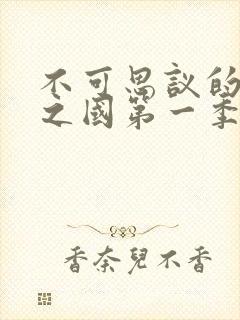 不可思议的
之國第一季
香奈兒不香